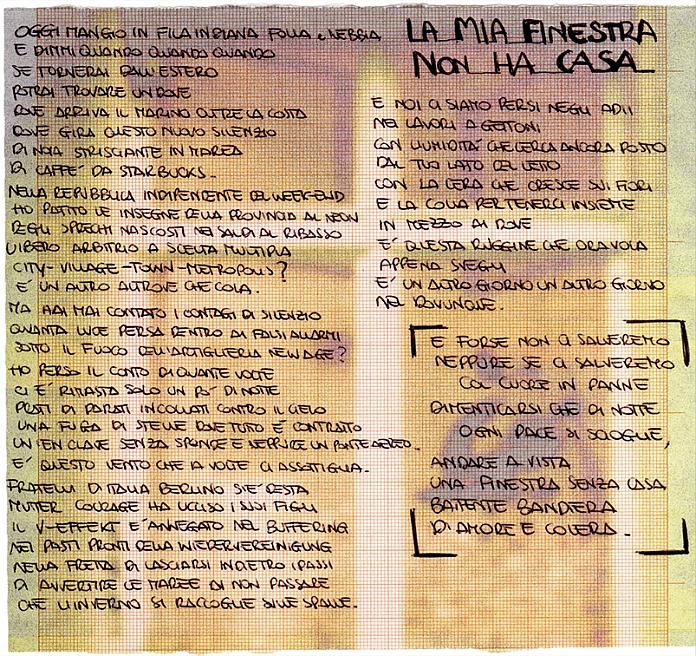 LA MIA FINESTRA
NON HA CASA
OGGI MANGIO IN FILA INDIANA FOLLA E NEBBIA
E DIMMI QUANDO QUANDO QUANDO
SE TORNERAI DALL'ESTERO
POTRAI TROVARE UN DOVE
DOVE ARRIVA IL MARINO OLTRE LA COSTA
DOVE GIRA QUESTO NUOVO SILENZIO
DI NOIA STRISCIANTE IN MAREA
DI CAFFE' DA STARBUCKS.
NELLA REPUBBLICA INDIPENDENTE DEL WEEK-END
HO PATITO LE INSEGNE DELLA PROVINCIA AL NEON
NEGLI SPRECHI NASCOSTI NEI SALDI AL RIBASSO
LIBERO ARBITRIO A SCELTA MULTIPLA
CITY-VILLAGE-TOWN-METROPOLIS?
E' UN ALTRO ALTROVE CHE COLA.
MA HAI MAI CONTATO I CONTAGI DI SILENZIO
QUANTA LUCE PERSA DENTRO AI FALSI ALLARMI
SOTTO IL FUOCO DELL'ARTIGLIERIA NEW AGE?
HO PERSO IL CONTO DI QUANTE VOLTE
CI E' RIMASTA SOLO UN PO' DI NOTTE
POSTI DI PARATI INCOLLATI CONTRO IL CIELO
UNA FUGA DI STELLE DOVE TUTO E' CONTRATTO
UN'ENCLAVE SENZA SPONDE E NEPPURE UN PONTE AEREO.
E' QUESTO VENTO CHE A VOLTE CI ASSOTTIGLIA.
FRATELLI D'ITALIA BERLINO S'E' DESTA
MUTTER COURAGE HA UCCISO I SUOI FIGLI
IL V-EFFEKT E' ANNEGATO NEL BUFFERING
NEI PASTI PRONTI DELLA WIEDERVEREINIGUNG
NELLA FRETTA DI LASCIARSI INDIETRO I PASSI
DI AVVERTIRE LE MAREE DI NON PASSARE
CHE L'INVERNO SI RACCOGLIE SULLE SPALLE.
E NOI CI SIAMO PERSI NEGLI ADDII
NEI LAVORI A GETTONI
CON L'UMIDITA' CHE CERCA ANCORA POSTO
DAL TUO LATO DEL LETTO
CON LA CERA CHE CRESCE SUI FIORI
E LA COLLA PER TENERCI INSIEME
IN MEZZO AI DOVE
E' QUESTA RUGGINE CHE ORA VOLA
APPENA SVEGLI
E' UN ALTRO GIORNO UN ALTRO GIORNO
NEL DOVUNQUE.
E FORSE NON CI SALVEREMO
NEPPURE SE CI SALVEREMO
COL CUORE IN PANNE
DIMENTICARSI CHE DI NOTTE
OGNI PACE SI SCIOGLIE,
ANDARE A VISTA
UNA FINESTRA SENZA CASA
BATTENTE BANDIERA
DI AMORE E COLERA.